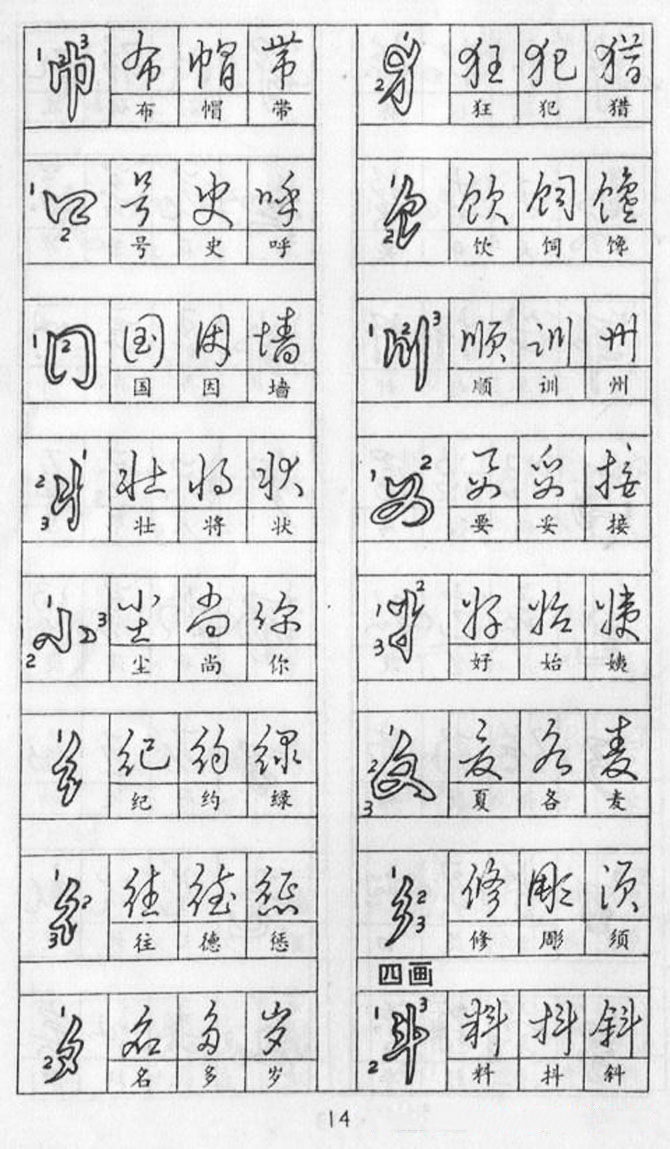 巾 布 帽 带
布 帽 带
口 号 史 呼
号 史 呼
囗 国 因 墙
国 因 墙
丬 壮 将 状
壮 将 状
小 尘 尚 你
尘 尚 你
纟 纪 约 绿
纪 约 绿
彳 往 德 惩
往 德 惩
夕 名 多 岁
名 多 岁
犭 狂 犯 猎
狂 犯 猎
饣 饮 饲 馋
饮 饲 馋
川 顺 训 州
顺 训 州
女 要 妥 接
要 妥 接
女 好 始 姨
好 始 姨
夂 夏 各 麦
夏 各 麦
彡 修 彫 须
修 彫 须
四画
斗 料 抖 斜
料 抖 斜
14